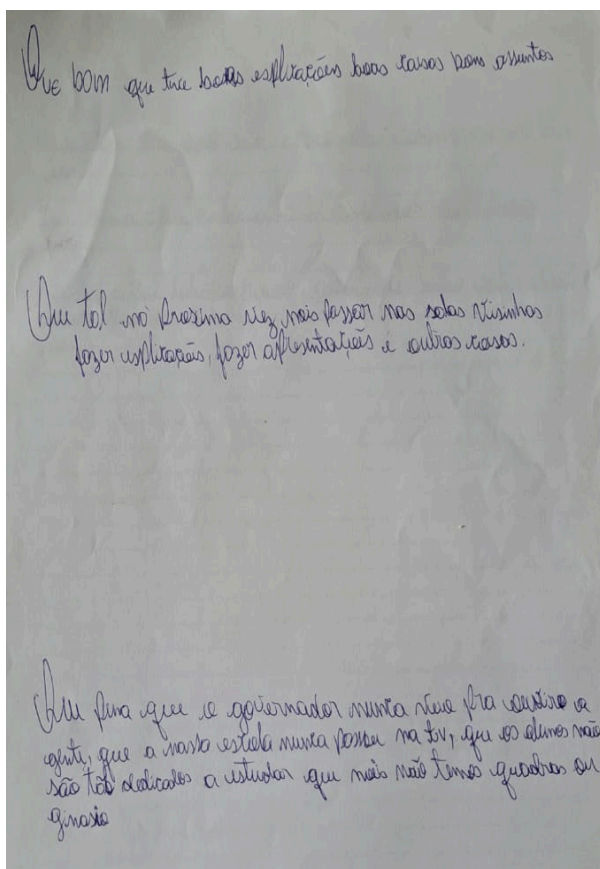 QUE bom que tive boas esplicações boas coisas bons assuntos
Que tal no proxima vez nois passar nas salas visinhas
fazer esplicações, fazer apresentações e outras coisas.
Que pena que o governador nunca veio pra ouviro a
gente, que a nossa escola nunca passou na tv, que os alunos não
são tão dedicados a estudar que nois não temos quadras ou
ginasio